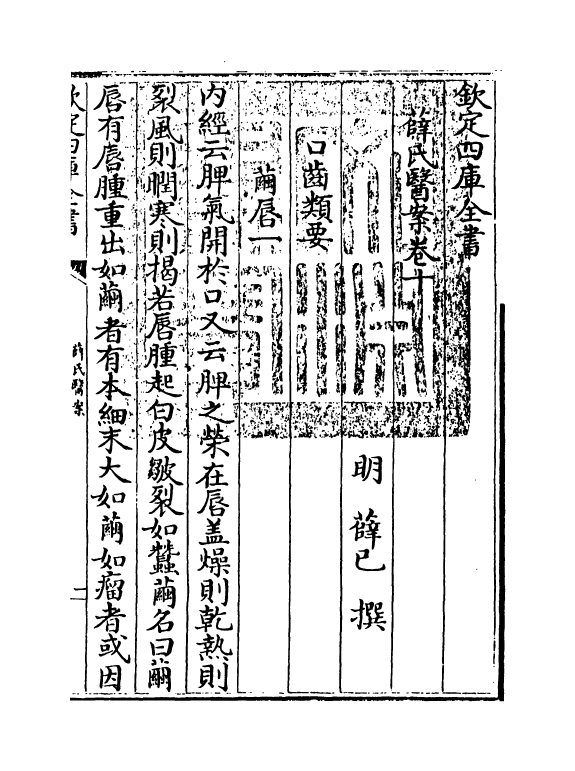 欽定四庫全書
薛氏醫案卷十
明 薛己 撰
口齒類要
繭唇一
内經云脾氣開於口又云脾之榮在唇盖燥則乾熱則
裂風則瞤寒則揭若唇腫起白皮皺裂如蠶繭名曰繭
唇有唇腫重出如繭者有本細末大如繭如瘤者或因
欽定四庫全書
薛氏醫案